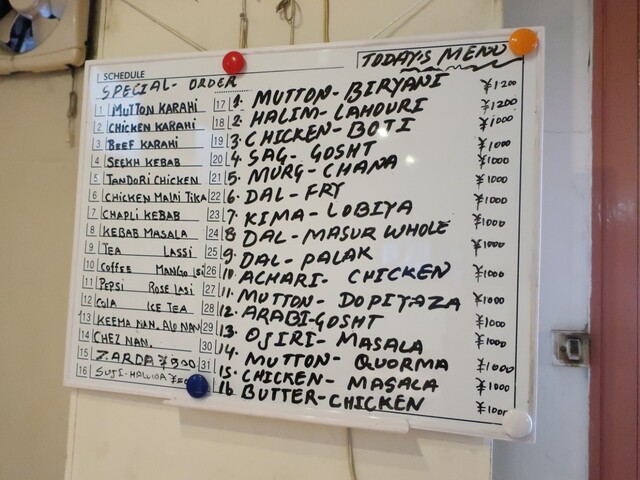 SCHEDULE
SPECIAL- ORDER
1 MUTTON KARAHI
2 CHICKEN KARAHI
3 BEEF KARAHI
4 SEEKH KEBAB
5 TANDORI CHICKEN
6 CHICKEN MALAI TIKA
7 CHAPLI KEBAB
8 KEBAB MASALA
9 TEA LASSI
10 COFFEE MANGO LSI
11 PEPSI ROSE LASI
12 COLA ICE TEA
13 KEEMA NAN. ALO NAN
14 CHEZ NAN.
15 ZARDA ¥300
16 SUJI-HALWA
TODAY'S MENU
17 1. MUTTON- BIRYANI ¥1200
18 2. HALIM- LAHOURI ¥1200
19 3. CHICKEN- BOTI ¥1000
20 4. SAG- GOSHT ¥1000
21 5. MURG- CHANA ¥1000
22 6. DAL- FRY ¥1000
23 7. KIMA- LOBIYA ¥1000
24 8. DAL- MASUR WHOLE ¥1000
25 9. DAL- PALAK ¥1000
26 10. ACHARI- CHICKEN ¥1000
27 11. MUTTON- DOPIYAZA ¥1000
28 12. ARABI-GOSHT ¥1000
29 13. OJIRI- MASALA ¥1000
30 14. MUTTON- QUORMA ¥1000
31 15. CHICKEN- MASALA ¥1000
16. BUTTER-CHICKEN ¥1000